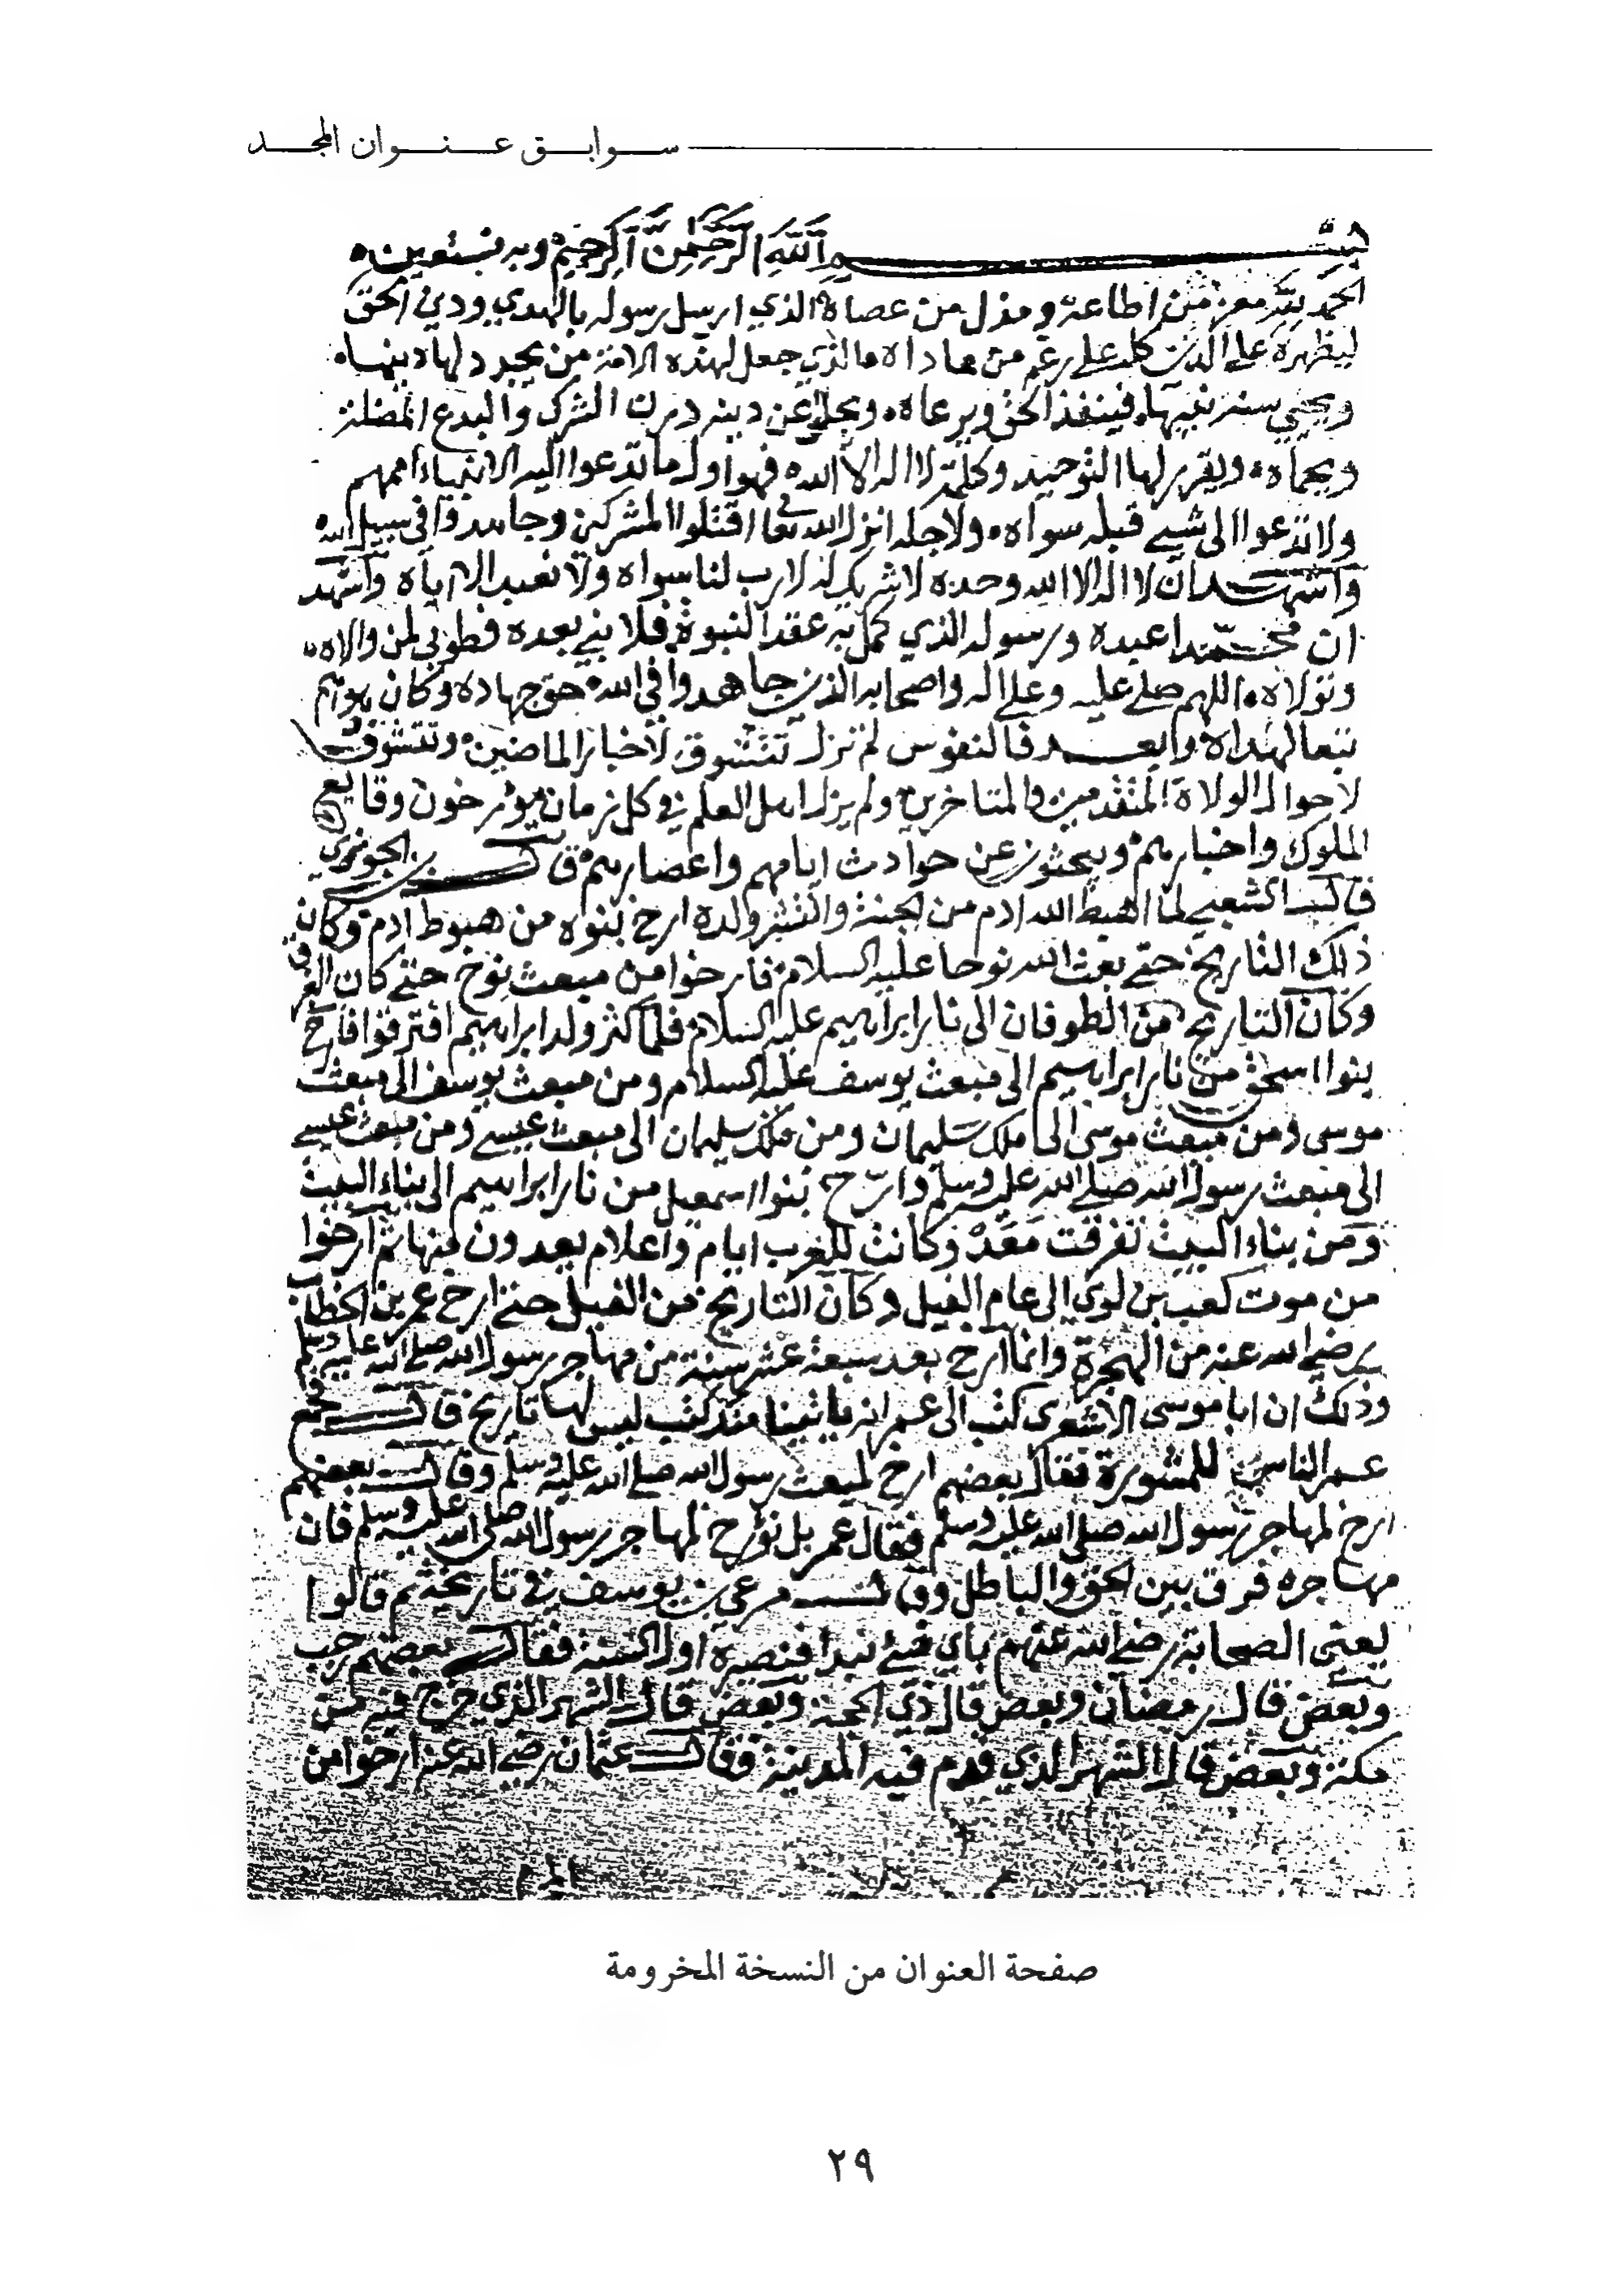 سوابق عنوان المجد
بسم الله الرحمن الرحيم وبه نستعين
الحمد لله معز من اطاعه ومذل من عصاه الذي ارسل رسوله بالهدى ودين الحق
ليظهره على الدين كله على رغم من عاداه الذي جعل لهذه الامة من يجدد لها دينها
ويحيي سنة نبيها فينفذ الحق ويرعاه ويجلي عن دينه درن الشرك والبدع المضلة
ويحماه ويقرر لها التوحيد وكلمة لا اله الا الله فهو اول ما تدعوا اليه الانبياء اممهم
ولا تدعوا الى شيء قبله سواه ولاجله انزل الله تعا اقتلوا المشركين وجاهدوا في سبيل الله
واشهد ان لا اله الا الله وحده لا شريك له لا رب لنا سواه ولا نعبد الا اياه واشهد
ان محمدا عبده ورسوله الذي كمل به عقد النبوة فلا نبي بعده فطوبى لمن والاه
وتولاه اللهم صل عليه وعلى اله واصحابه الذين جاهدوا في الله حق جهاده وكان هواهم
تبعا لهداه وبعد فالنفوس لم تزل تتشوق لاخبار الماضين وتتشوف
لاحوال الولاة المتقدمين والمتاخرين ولم يزل اهل العلم في كل زمان يؤرخون وقايع
الملوك واخبارهم ويبحثون عن حوادث ايامهم واعصارهم قال بن الجوزي
قال الشعبي لما اهبط الله ادم من الجنة وانتشر ولده ارخ بنوه من هبوط ادم وكان
ذلك التاريخ حتى بعث الله نوحا عليه السلام فارخوا من مبعث نوح حتى كان الغرق
وكان التاريخ من الطوفان الى نار ابراهيم عليه السلام فلما كثر ولد ابراهيم افترقوا فارخ
بنوا اسحق من نار ابراهيم الى مبعث يوسف عليه السلام ومن مبعث يوسف الى مبعث
موسى ومن مبعث موسى الى ملك سليمان ومن ملك سليمان الى مبعث عيسى ومن مبعث عيسى
الى مبعث رسول الله صلى الله عليه وسلم وارخ بنوا اسمعيل من نار ابراهيم الى بناء البيت
ومن بناء البيت تفرقت معد وكانت للعرب ايام واعلام يعدون منها ثم ارخوا
من موت كعب بن لوي الى عام الفيل وكان التاريخ من الفيل حتى ارخ عمر بن الخطاب
رضي الله عنه من الهجرة وانما ارخ بعد سبعة عشر سنة من مهاجر رسول الله صلى الله عليه وسلم
وذلك ان ابا موسى الاشعري كتب الى عمر انه ياتينا منك كتب ليس لها تاريخ قال فجمع
عمر الناس للمشورة فقال بعضهم ارخ لمبعث رسول الله صلى الله عليه وسلم وقال بعضهم
ارخ لمهاجر رسول الله صلى الله عليه وسلم فقال عمر بل نؤرخ لمهاجر رسول الله صلى الله عليه وسلم فان
مهاجره فرق بين الحق والباطل وقال مرعي بن يوسف في تاريخه ثم قالوا
يعني الصحابة رضي الله عنهم باي شيء نبدا فنصيره اول السنة فقال بعضهم رجب
وبعض قال رمضان وبعض قال ذي الحجة وبعض قال الشهر الذي خرج فيه من
مكة وبعض قال الشهر الذي قدم فيه المدينة فقال عثمان رضي الله عنه ارخوا من
صفحة العنوان من النسخة المخرومة
٢٩